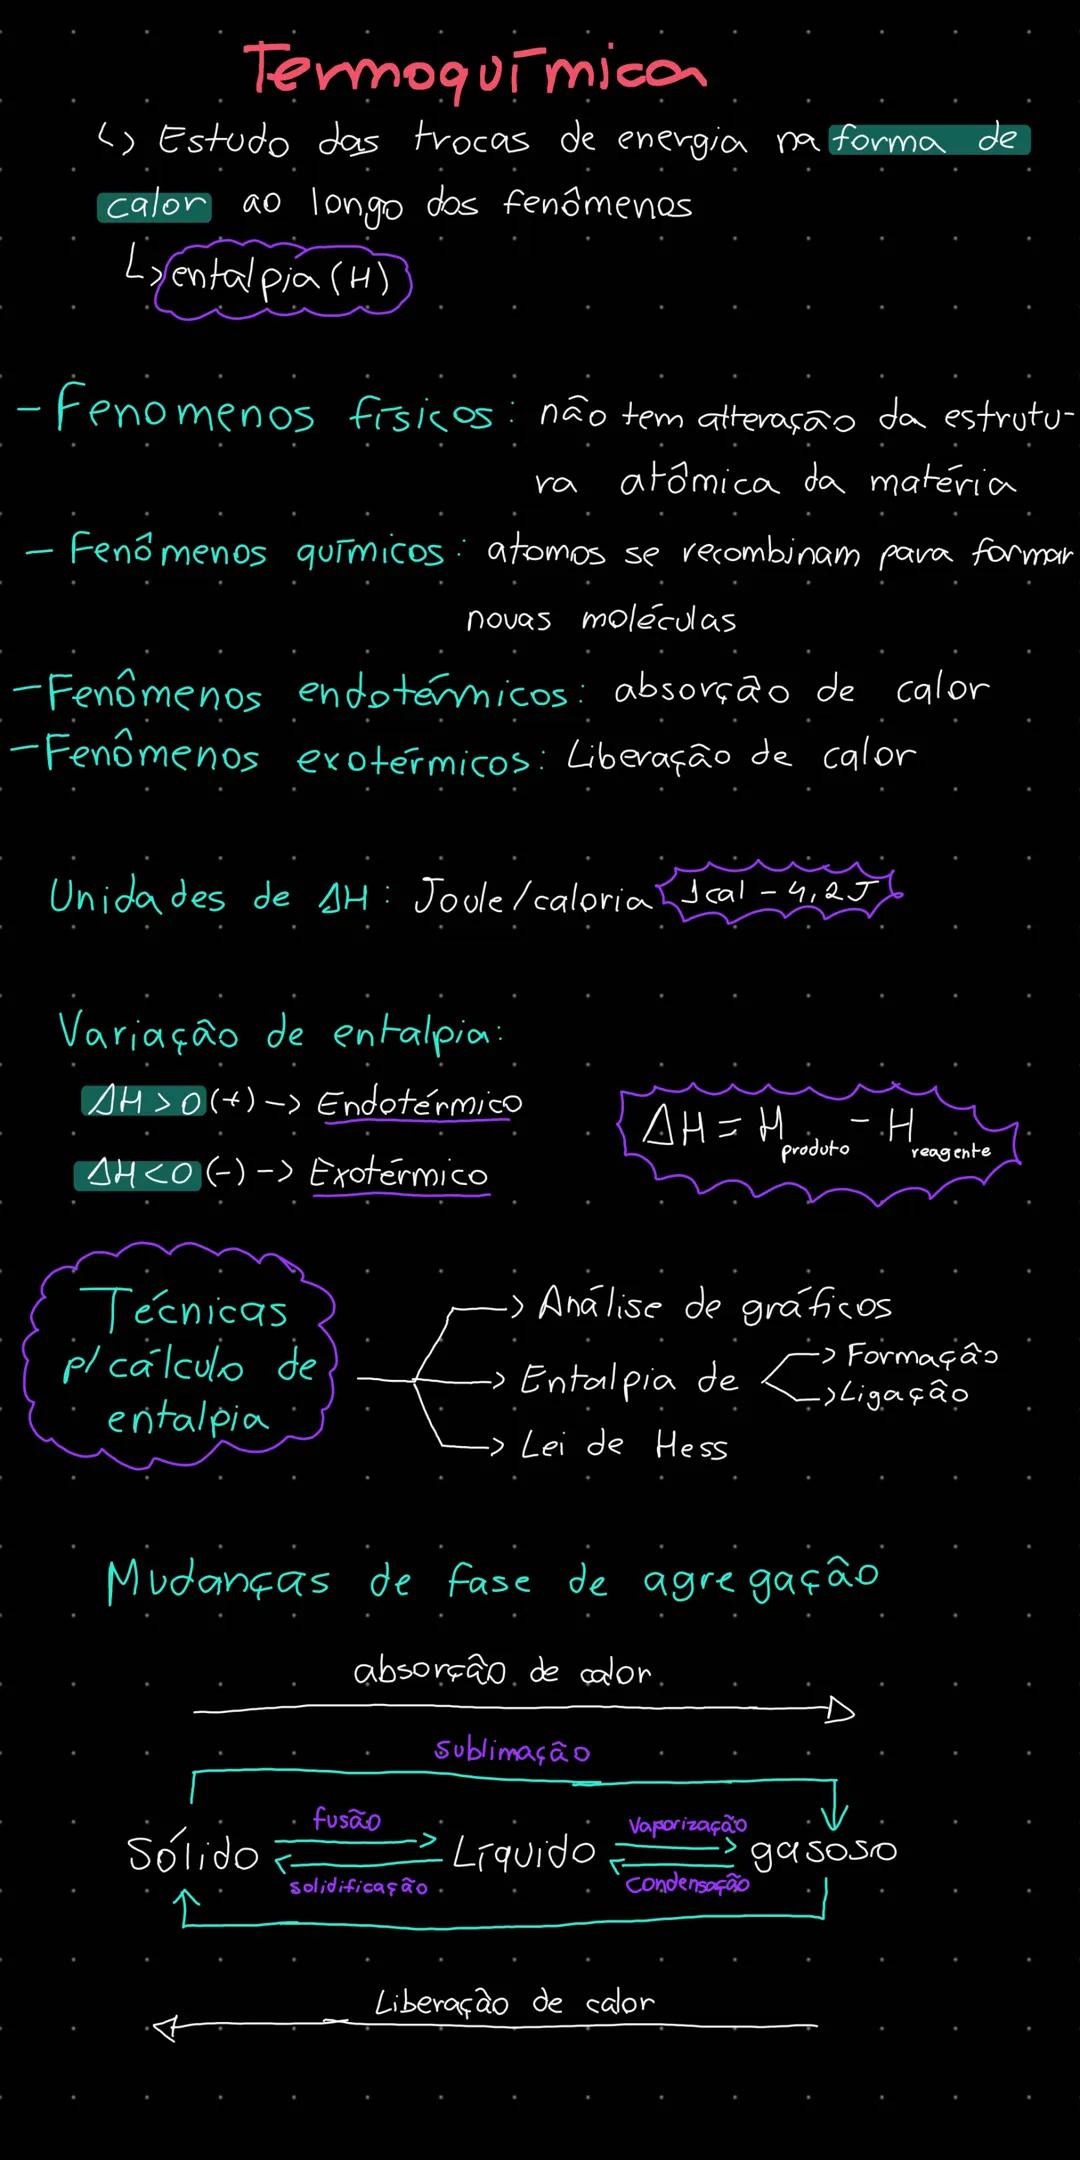 Termoquímica
↳ Estudo das trocas de energia na forma de
calor ao longo dos fenômenos
↳ entalpia (H)
- Fenomenos físicos: não tem alteração da estrutu-
ra atômica da matéria
- Fenômenos químicos: atomos se recombinam para formar
novas moléculas
- Fenômenos endotérmicos: absorção de calor
- Fenômenos exotérmicos: Liberação de calor
Unidades de ΔH: Joule/caloria 1cal - 4,2J
Variação de entalpia:
ΔH > 0 (+) -> Endotérmico
ΔH < 0 (-) -> Exotérmico
ΔH = H produto - H reagente
Técnicas
p/ cálculo de
entalpia
-> Análise de gráficos
-> Entalpia de
-> Formação
-> Ligação
-> Lei de Hess
Mudanças de fase de agregação
absorção de calor
sublimação
fusão
Vaporização
Sólido
Líquido
gasoso
solidificação
Condensação
Liberação de calor